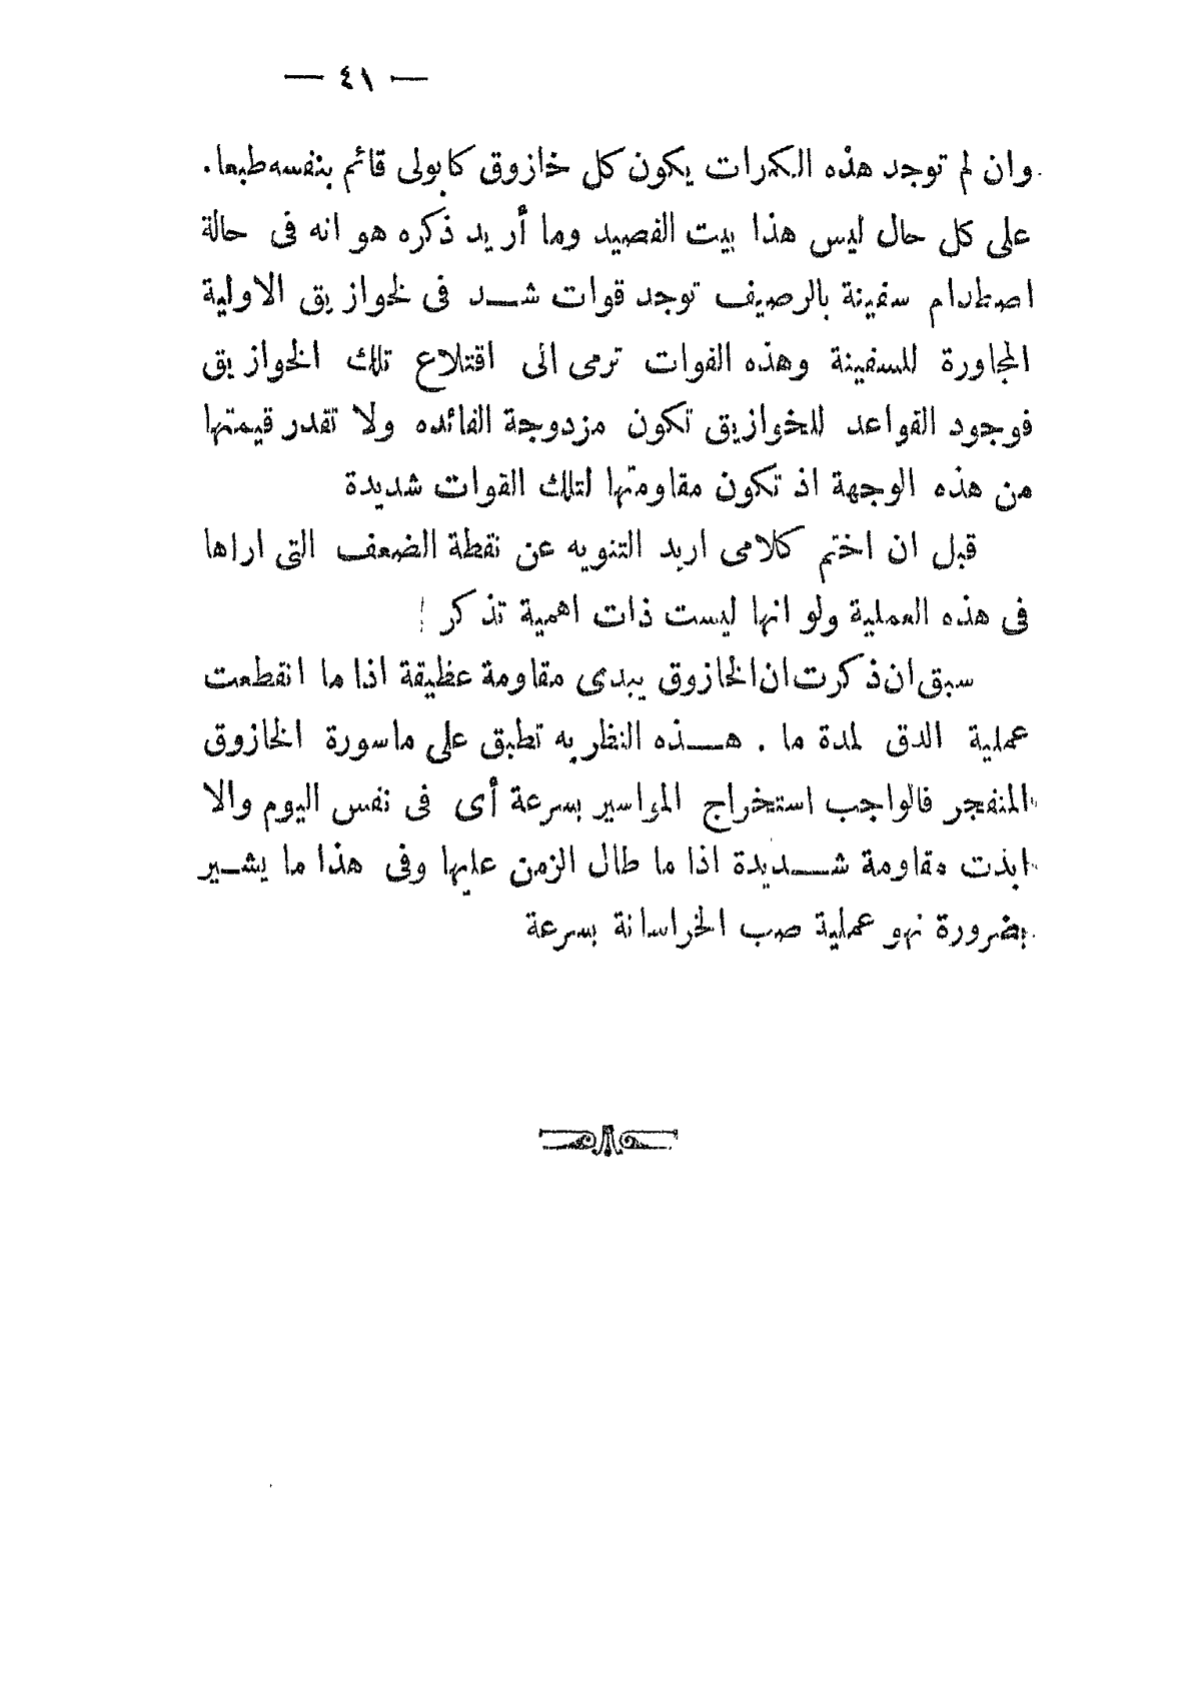 — ٤١ —
وان لم توجد هذه الكمرات يكون كل خازوق كابولى قائم بنفسه طبعا.
على كل حال ليس هذا بيت القصيد وما أريد ذكره هو انه فى حالة
اصطدام سفينة بالرصيف توجد قوات شد فى لخوازيق الاولية
المجاورة للسفينة وهذه القوات ترمى الى اقتلاع تلك الخوازيق
فوجود القواعد للخوازيق تكون مزدوجة الفائده ولا تقدر قيمتها
من هذه الوجهة اذ تكون مقاومتها لتلك القوات شديدة
قبل ان اختم كلامى اريد التنويه عن نقطة الضعف التى اراها
فى هذه العملية ولو انها ليست ذات اهمية تذكر !
سبق ان ذكرت ان الخازوق يبدى مقاومة عظيقة اذا ما انقطعت
عملية الدق لمدة ما . هذه النظريه تطبق على ماسورة الخازوق
المنفجر فالواجب استخراج المواسير بسرعة أى فى نفس اليوم والا
ابدت مقاومة شديدة اذا ما طال الزمن عليها وفى هذا ما يشير
بضرورة نهو عملية صب الخراسانة بسرعة